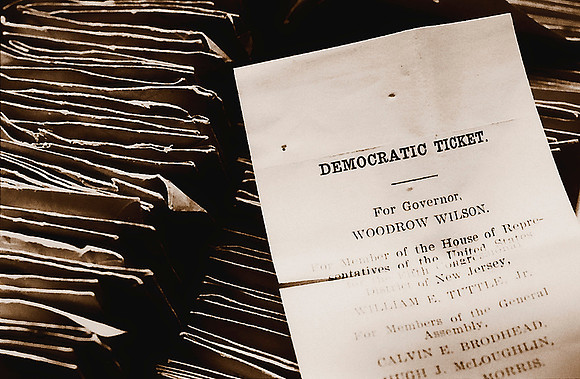 DEMOCRATIC TICKET.
For Governor,
WOODROW WILSON.
For Member of the House of Repre-
sentatives of the United States
District of New Jersey,
WILLIAM E. TUTTLE, Jr.
For Members of the General
Assembly,
CALVIN E. BRODHEAD,
HUGH J. McLOUGHLIN,
MORRIS.